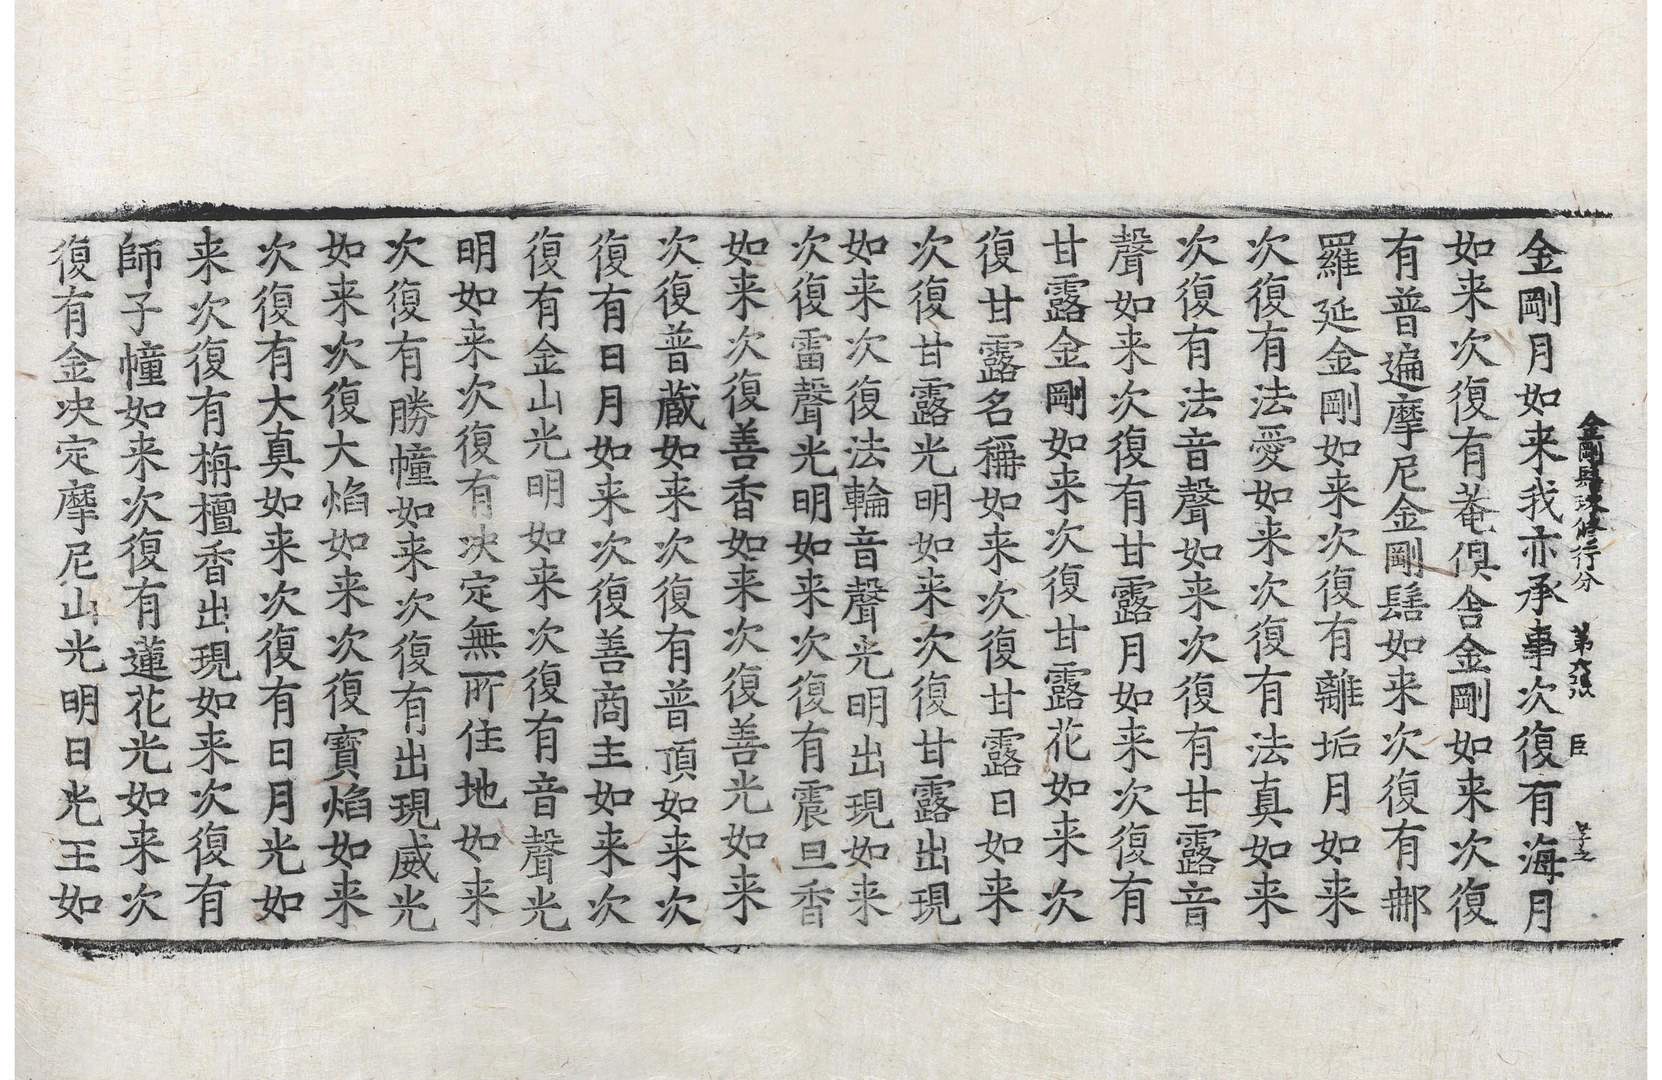 金剛髻珠修行分 第六張 臣
金剛月如来我亦承事次復有海月
如来次復有菴俱舍金剛如来次復
有普遍摩尼金剛髻如来次復有那
羅延金剛如来次復有離垢月如来
次復有法愛如来次復有法真如来
次復有法音聲如来次復有甘露音
聲如来次復有甘露月如来次復有
甘露金剛如来次復甘露花如来次
復甘露名稱如来次復甘露日如来
次復甘露光明如来次復甘露出現
如来次復法輪音聲光明出現如来
次復雷聲光明如来次復有震旦香
如来次復善香如来次復善光如来
次復普蔵如来次復有普頂如来次
復有日月如来次復善商主如来次
復有金山光明如来次復有音聲光
明如来次復有决定無所住地如来
次復有勝幢如来次復有出現威光
如来次復大焰如来次復寶焰如来
次復有大真如来次復有日月光如
来次復有栴檀香出現如来次復有
師子幢如来次復有蓮花光如来次
復有金决定摩尼山光明日光王如